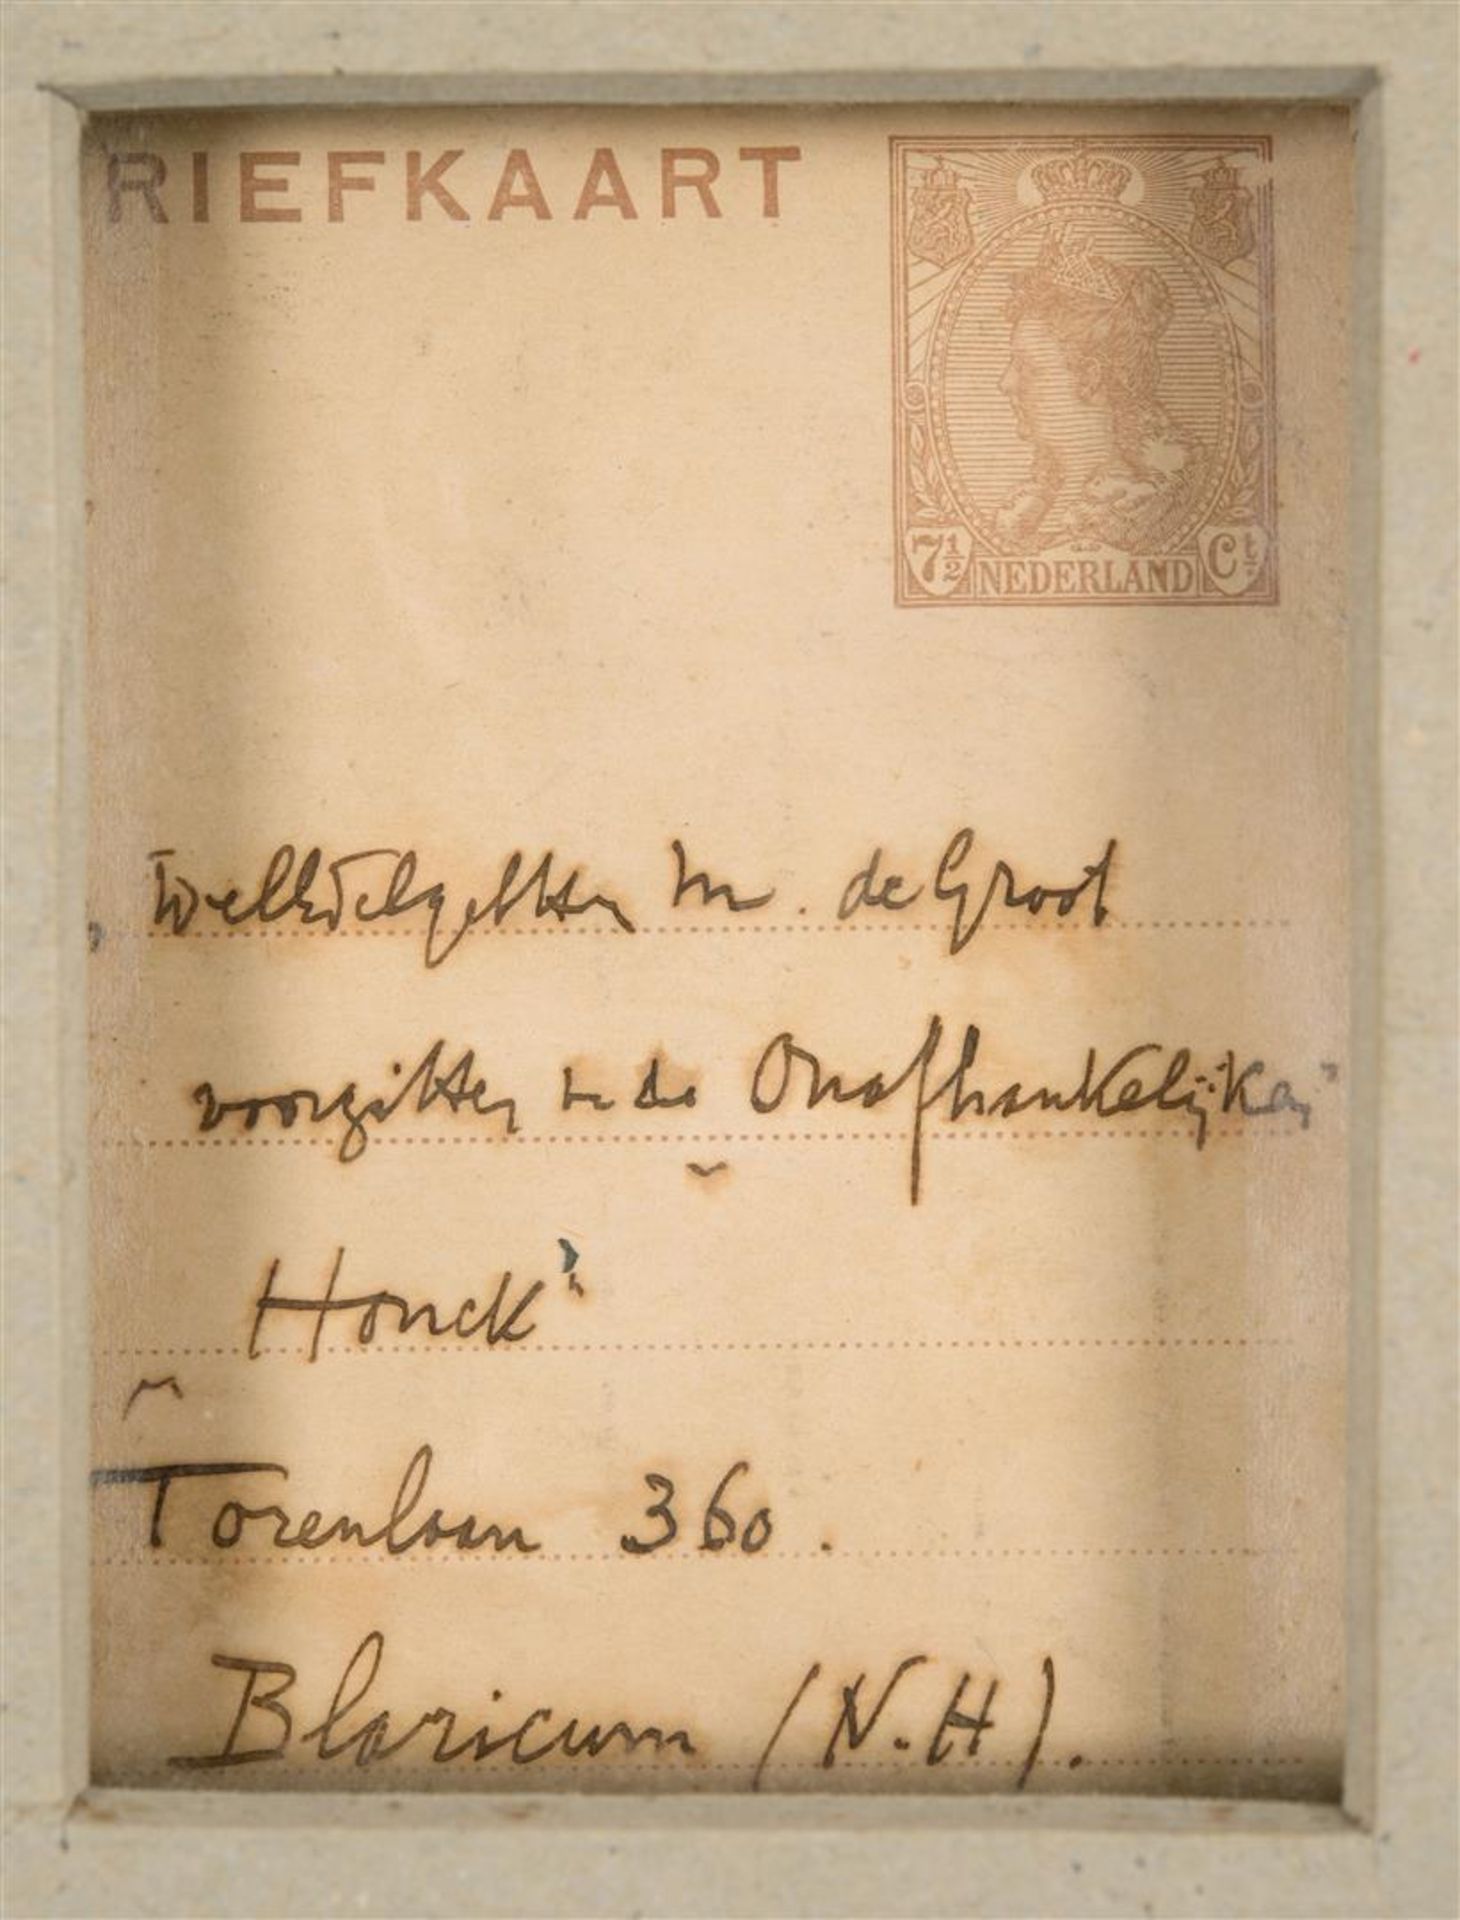 RIEFKAART
7½ NEDERLAND Ct.
M. de Groot
voorzitter de Onafhankelijken"
Honck"
Torenlaan 360.
Blaricum (N.H).